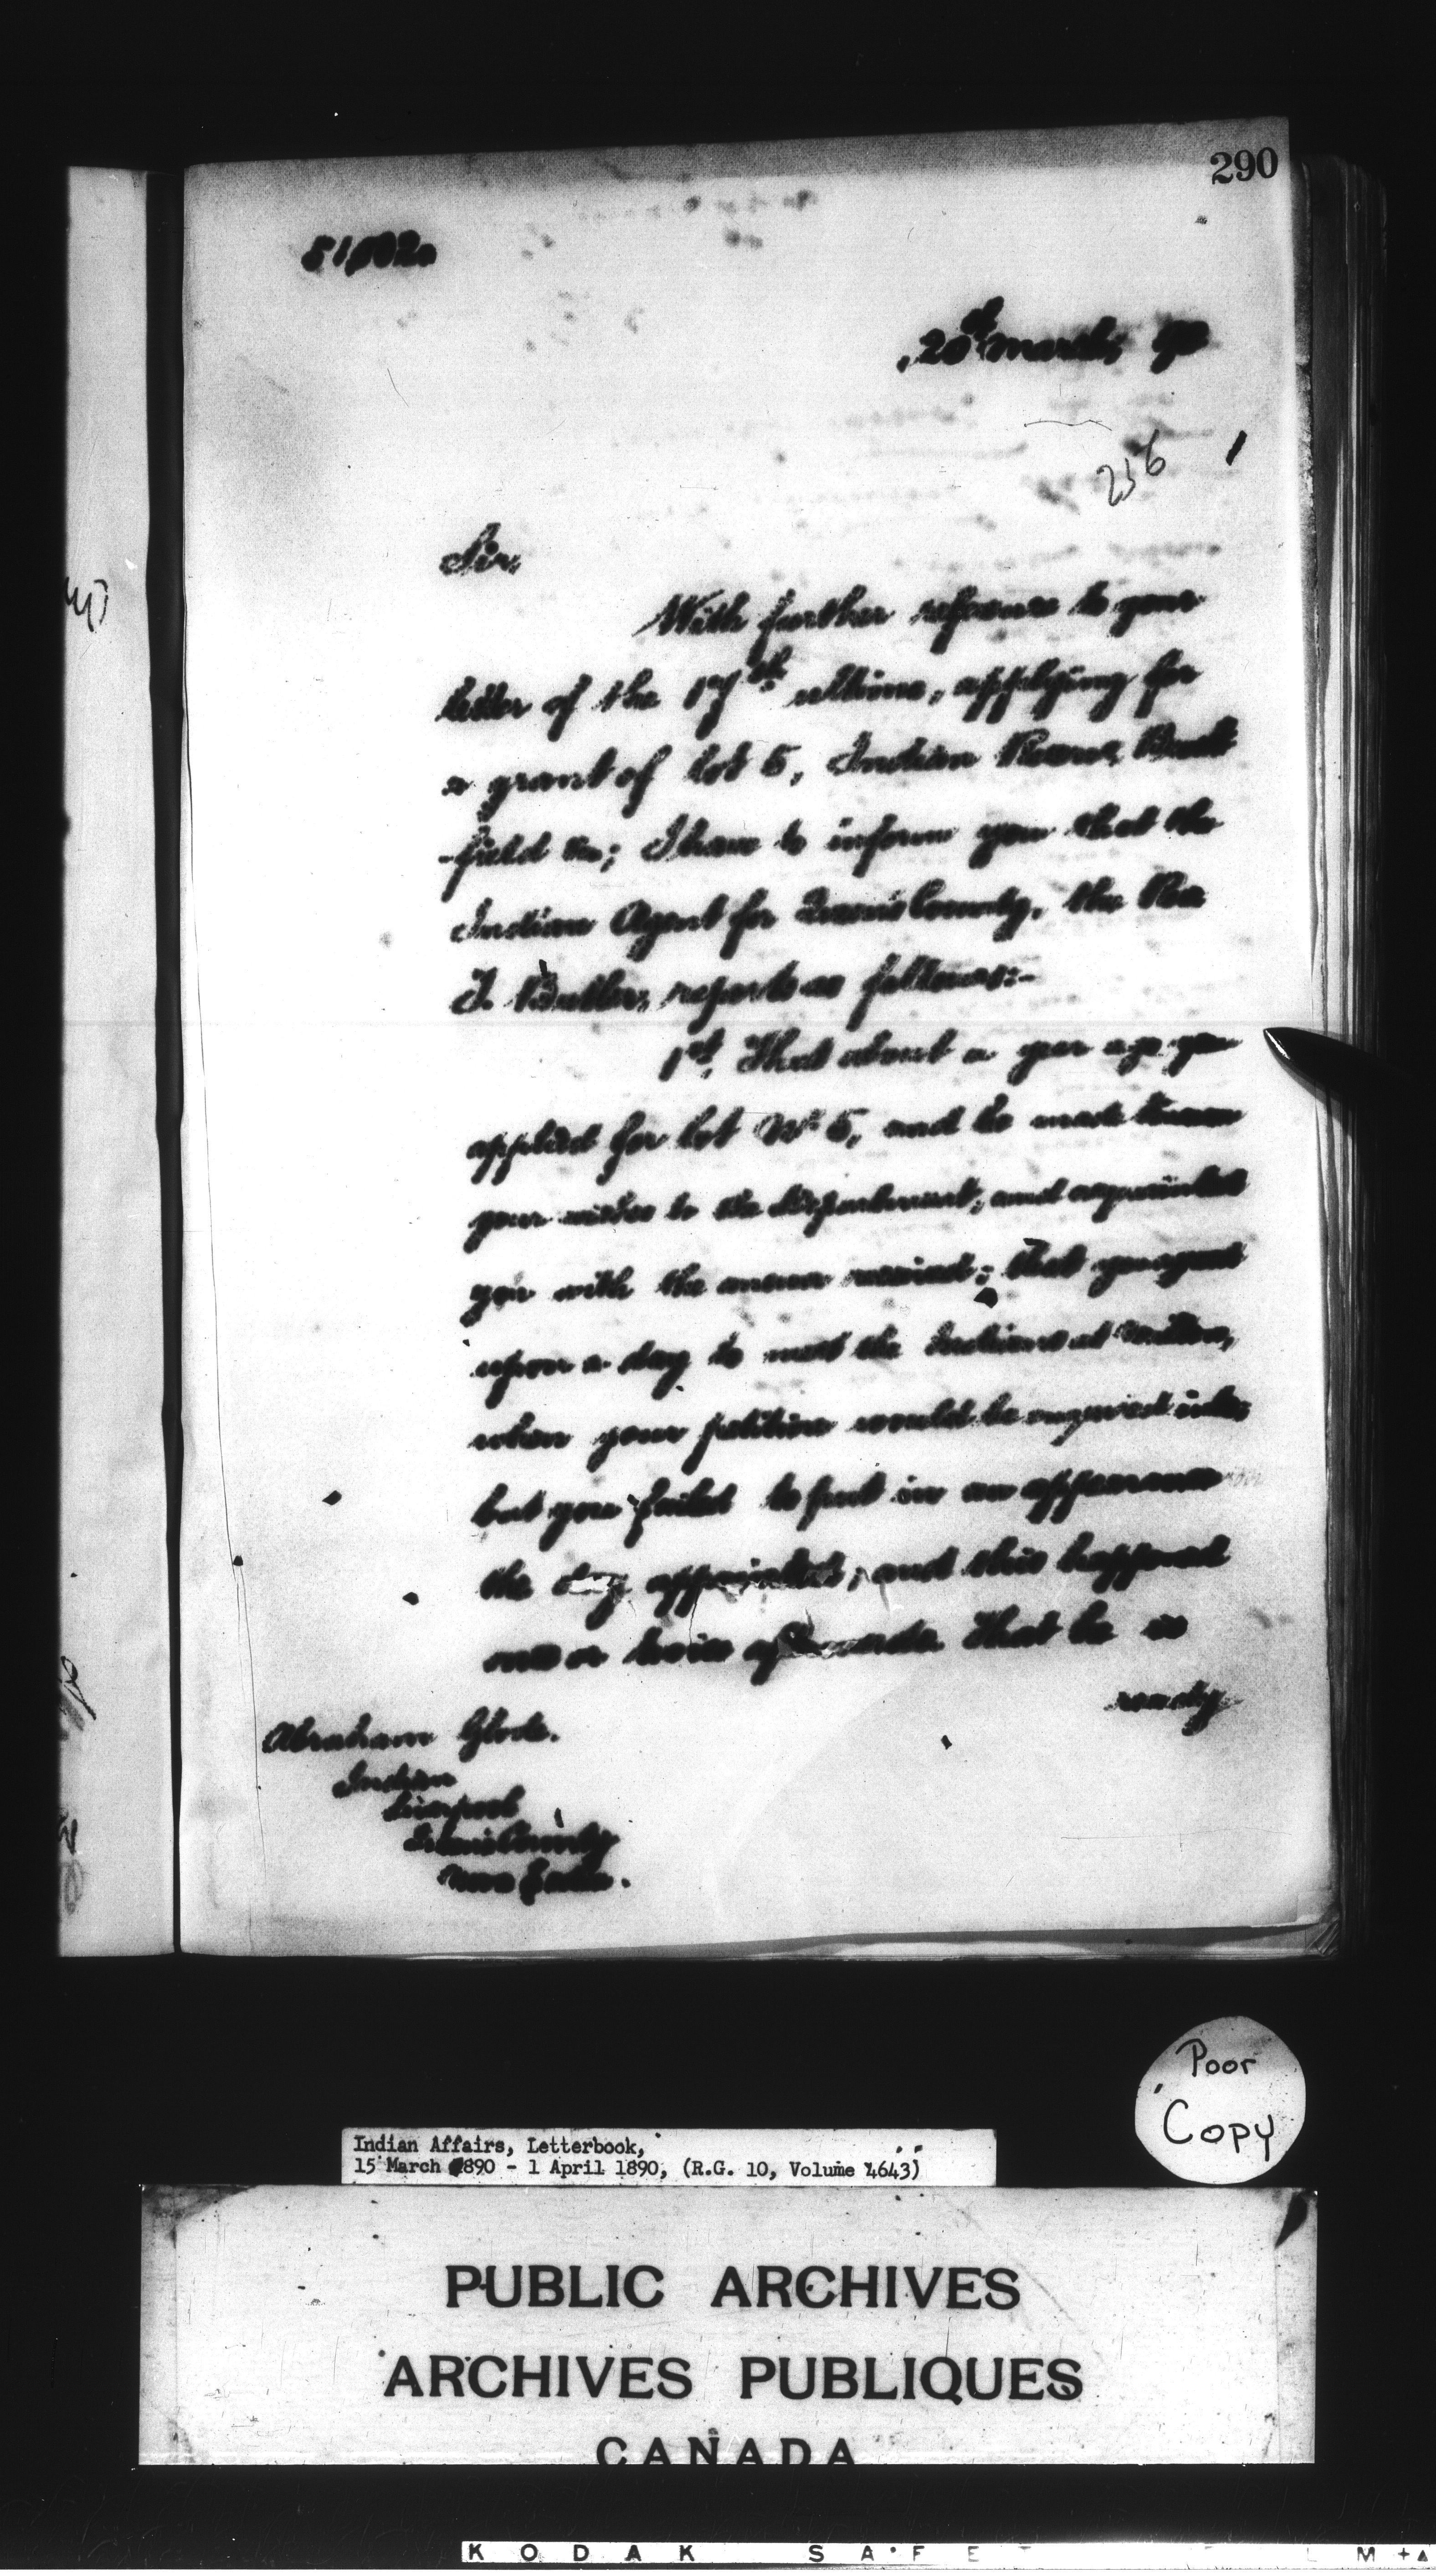 290
20th March, 90
256
Sir,
With further reference to your
letter of the 17th ultimo, applying for
a grant of lot 5, Indian Reserve,
-field &c; I have to inform you that the
Indian Agent for Queens County, the Rev
J. Butler, reports as follows:-
1st. That about a year ago you
applied for lot No 5, and he made known
your wishes to the Department, and acquainted
you with the answer received; that you agreed
upon a day to meet the Indians at
when your petition would be enquired into,
but you failed to put in an appearance
the day appointed, and this happened
once or twice afterwards. That he is
ready
Abraham Glode.
Indian
Liverpool
Queens County
Nova Scotia.
Poor
Copy
Indian Affairs, Letterbook,
15 March 1890 - 1 April 1890, (R.G. 10, Volume 4643)
PUBLIC ARCHIVES
ARCHIVES PUBLIQUES
CANADA
KODAK SAFE